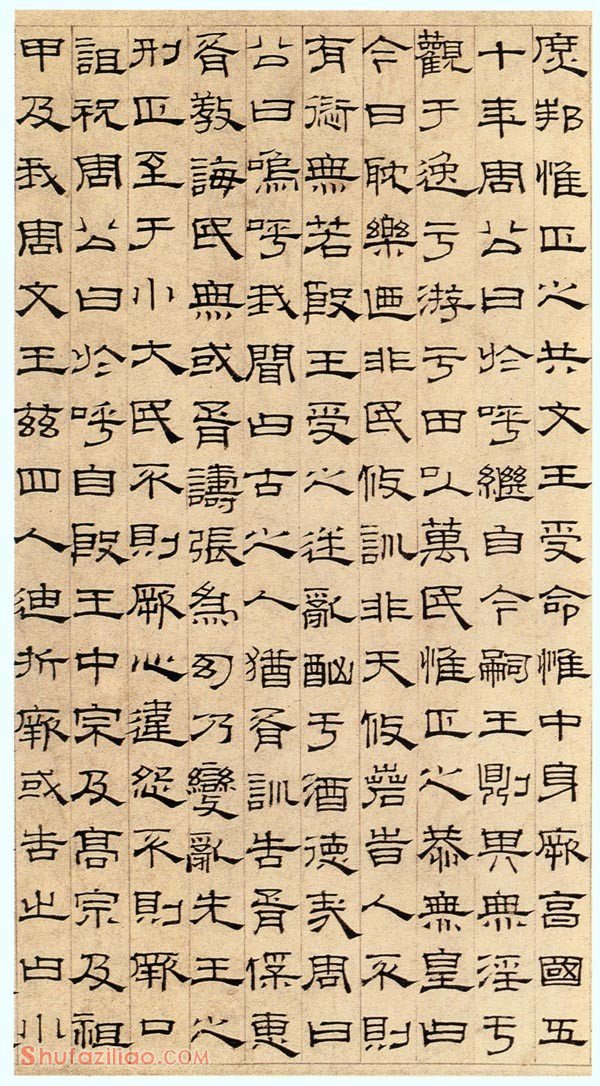 庶邦惟正之共文王受命惟中身厥享國五
十年周公曰於呼繼自今嗣王則其無淫于
觀于逸于游于田以萬民惟正之恭無皇曰
今日耽樂迺非民攸訓非天攸若旹人不則
有愆無若殷王受之迷亂酗于酒德哉周曰
公曰嗚呼我聞曰古之人猶胥訓告胥保惠
胥教誨民無或胥譸張為幻乃變亂先王之
刑正至于小大民不則厥心違怨不則厥口
詛祝周公曰於呼自殷王中宗及高宗及祖
甲及我周文王茲四人迪折厥或告之曰小
Shufaziliao.COM